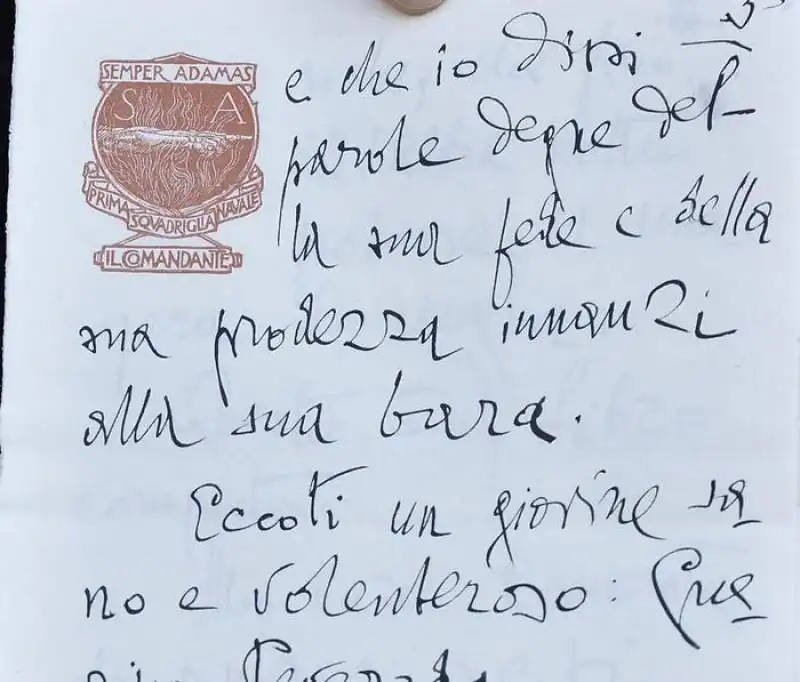 SEMPER ADAMAS
S A
PRIMA SQVADRIGLIA NAVALE
IL COMANDANTE
e che io dissi
parole degne del-
la sua fede e della
sua prodezza innanzi
alla sua bara.
Eccoti un giovine sa
no e volenteroso: